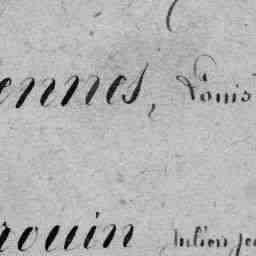 ennes, Louis
rouin Julien Je